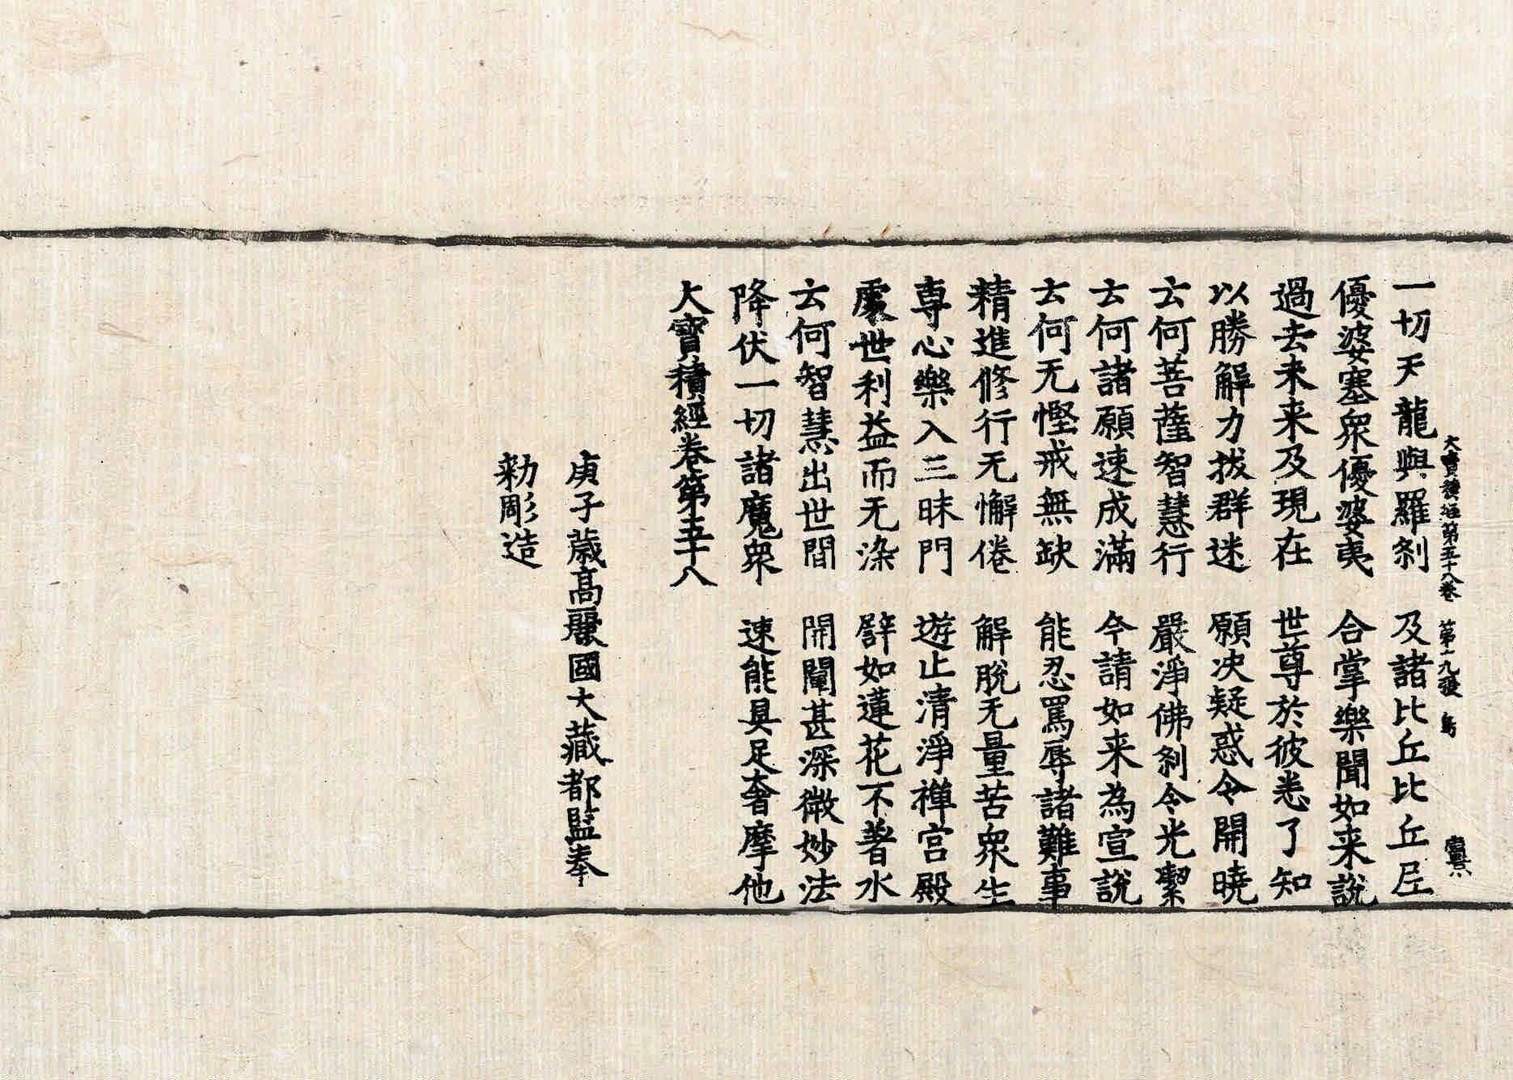 大寶積經第五十八卷 第十九張 鳥
一切天龍與羅剎 及諸比丘比丘尼
優婆塞衆優婆夷 合掌樂聞如来說
過去未来及現在 世尊於彼悉了知
以勝解力拔群迷 願决疑惑令開曉
云何菩薩智慧行 嚴淨佛剎令光絜
云何諸願速成滿 今請如来為宣說
云何无慳戒無缺 能忍罵辱諸難事
精進修行无懈倦 解脫无量苦衆生
專心樂入三昧門 遊止清淨禪宮殿
處世利益而无染 譬如蓮花不著水
云何智慧出世間 開闡甚深微妙法
降伏一切諸魔衆 速能具足奢摩他
大寶積經卷第五十八
庚子歲高麗國大藏都監奉
勑彫造